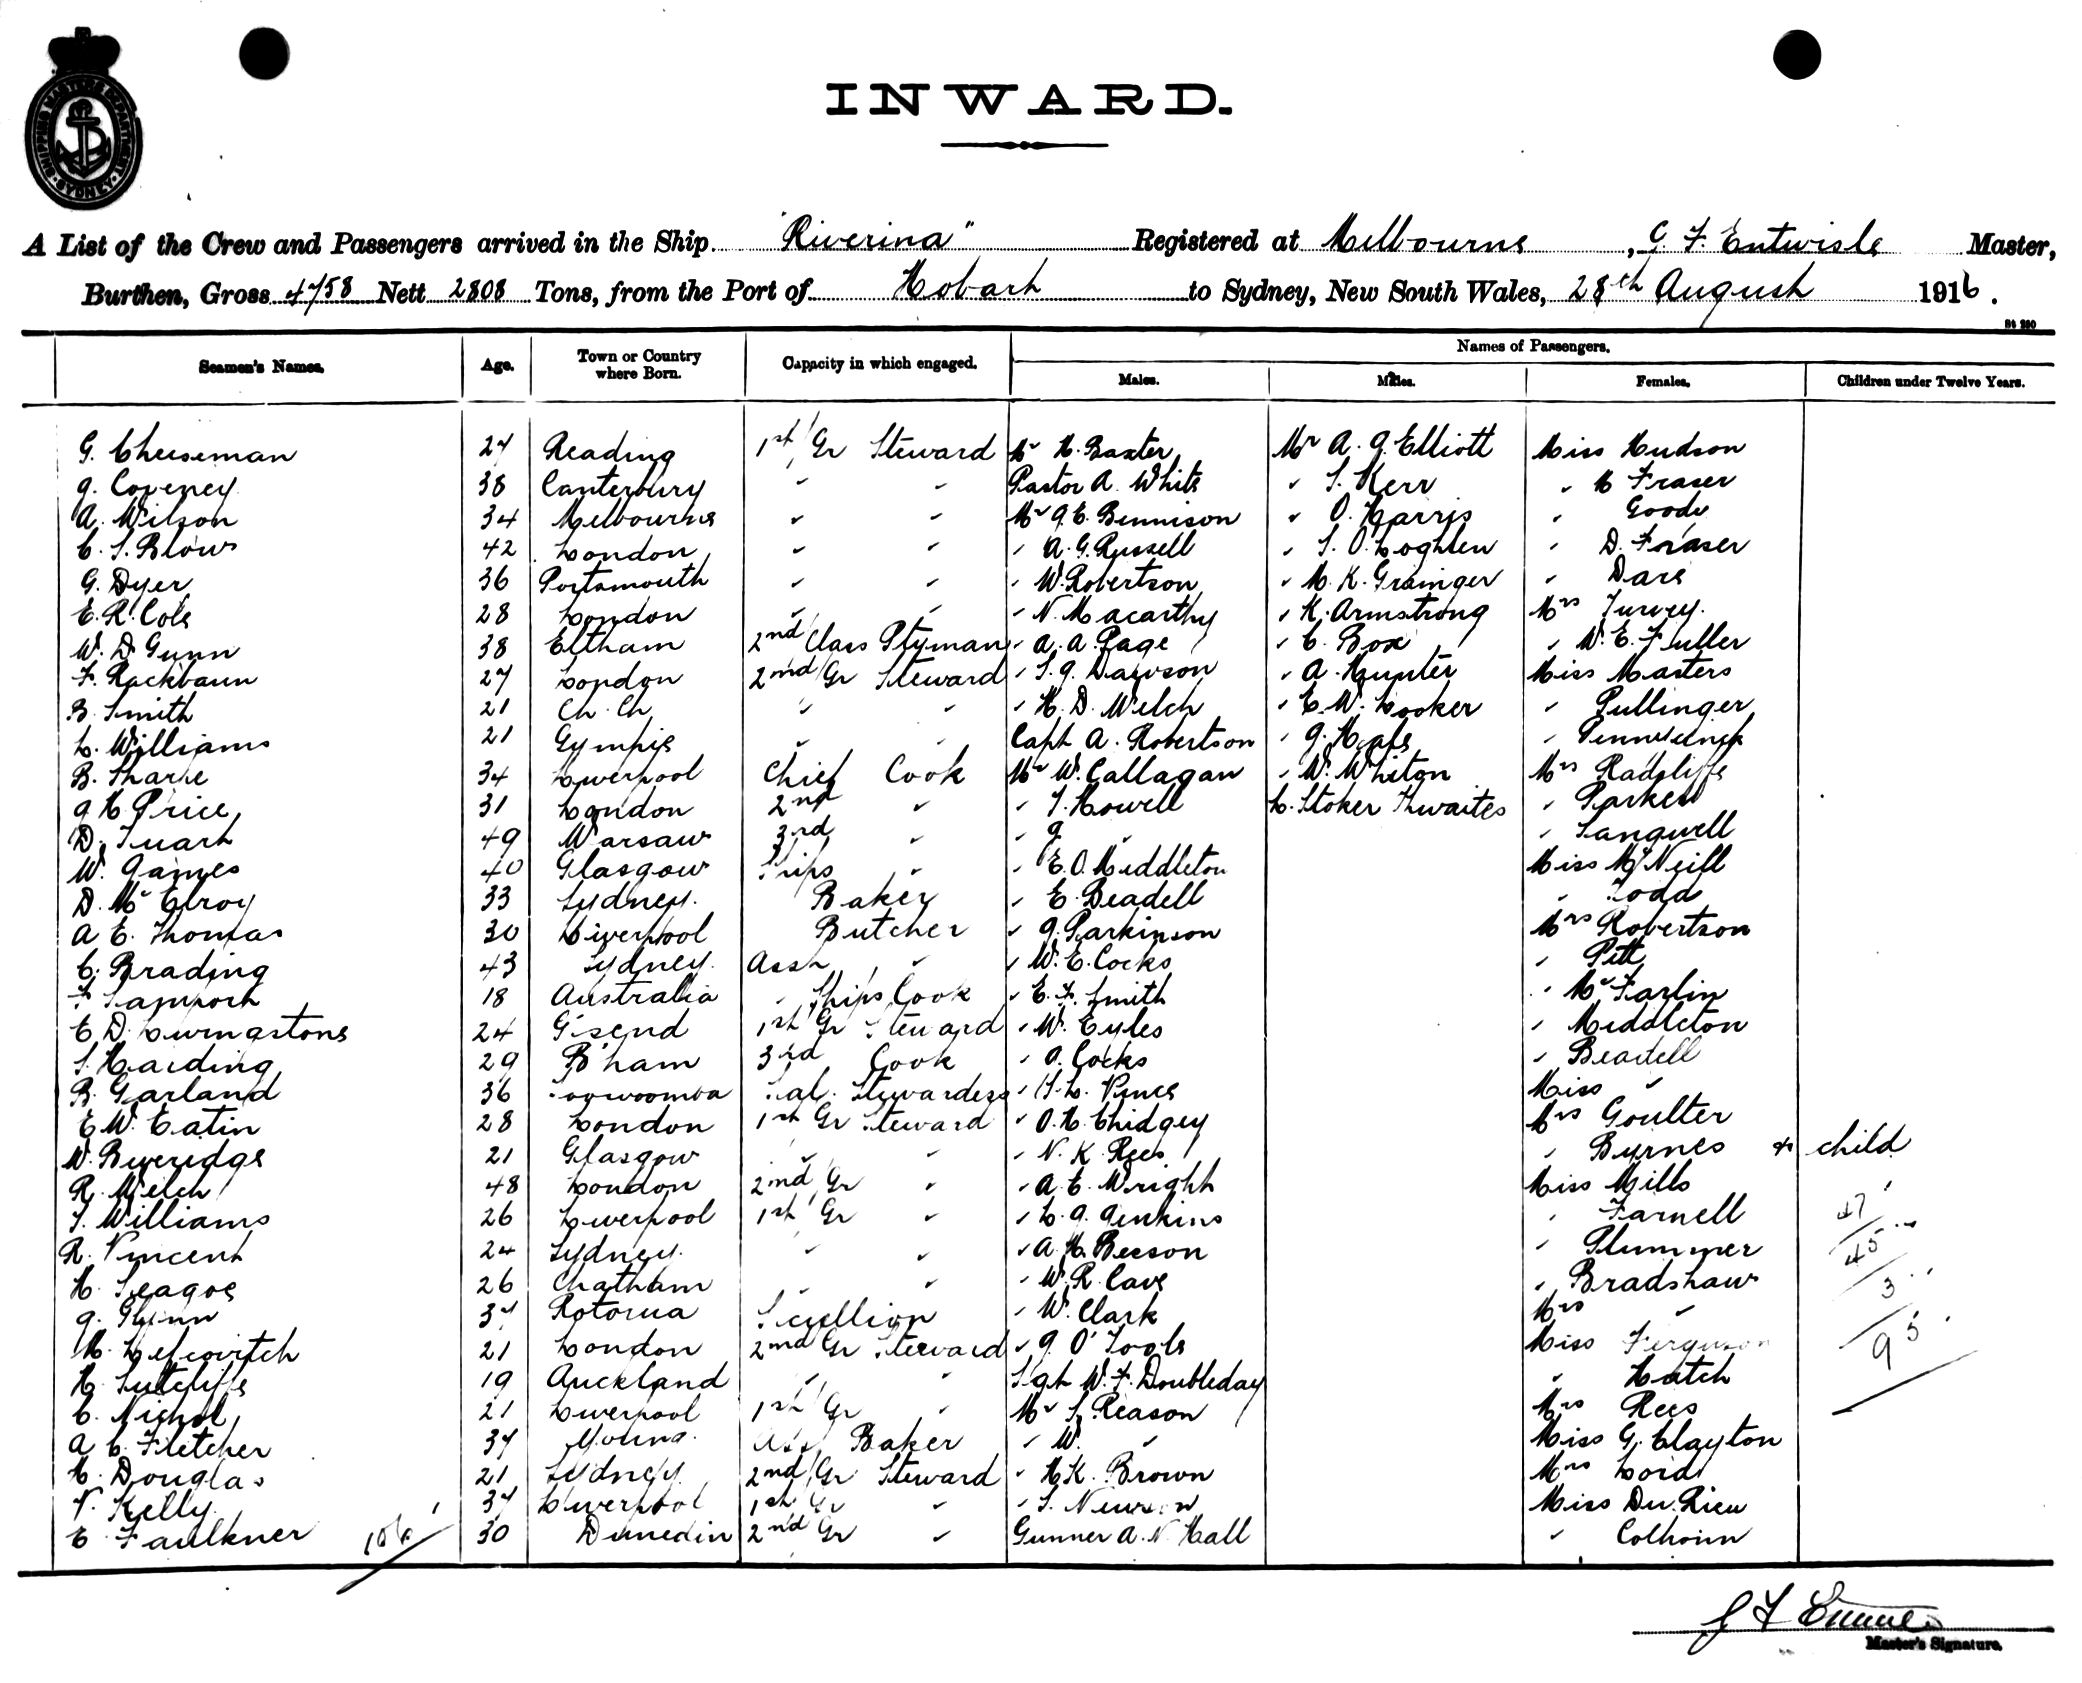 SHIPPING MASTERS DEPARTMENT
SYDNEY
INWARD.
A List of the Crew and Passengers arrived in the Ship "Riverina" Registered at Melbourne, C. F. Entwisle Master,
Burthen, Gross 4758 Nett 2808 Tons, from the Port of Hobart to Sydney, New South Wales, 28th August 1916.
St 280
Names of Passengers.
Seamen's Names. Age. Town or Country where Born. Capacity in which engaged. Males. Males. Females. Children under Twelve Years.
G. Cheeseman 27 Reading 1st Gr Steward Mr H. Baxter Mr A. J. Elliott Miss Hudson
J. Coveney 38 Canterbury " " Pastor A. White " S. Kerr " M Fraser
A. Wilson 34 Melbourne " " Mr J. E. Bennison " O. Harris " Goode
C. S. Blow 42 London " " " A. G. Russell " S. O. Loghlen " D. Fraser
G. Dyer 36 Portsmouth " " " W. Robertson " M. K. Grainger " Dare
E. R. Cole 28 London " " " N. Macarthy " K. Armstrong Mrs Turvey.
W. D. Gunn 38 Eltham 2nd Class Ptyman " A. A. Page " C. Box " W. E. Fuller
F. Rackbaun 27 London 2nd Gr Steward " S. J. Dawson " A. Hunter Miss Masters
B. Smith 21 Ch. Ch. " " " H. D. Welch " E. W. Looker " Pullinger
L. Williams 21 Gympie " " Capt A. Robertson " J. Hale "
B. Sharpe 34 Liverpool Chief Cook Mr W. Callagan " W. Whiton Mrs Radcliffe
J H Price 31 London 2nd " " T. Howell L. Stoker Thwaites " Parker
D. Tuart 49 Warsaw 3rd " " J. " " Sangwell
W. James 40 Glasgow Ships " " E. O. Middleton Miss McNeill
D. McElroy 33 Sydney. Baker " E. Beadell " Todd
A E. Thomas 30 Liverpool Butcher " J. Parkinson Mrs Robertson
C. Brading 43 Sydney. Asst " " W. E. Cocks " Pitt
F. 18 Australia " Ships Cook " E. F. Smith " McFarlin
E D. Livingstone 24 G'send 1st Gr Steward " W. Eyles " Middleton
S. Harding 29 B'ham 3rd Cook " O. Cocks " Beadell
B. Garland 36 Toowoomba Sal. Stewardess " Vines Miss "
E W. Eatin 28 London 1st Gr Steward " O. H. Chidgey Mrs Goulter
W. Beveridge 21 Glasgow " " " N. K. Rees " Byrnes + child
R. Welch 48 London 2nd Gr " " A. E. Wright Miss Mills
S. Williams 26 Liverpool 1st Gr " " L. J. Jenkins " Farnell 47
R. Vincent 24 Sydney. " " " A. H. Beeson " Plummer 45
H. Seagoe 26 Chatham " " " W. R. Cave " Bradshaw 3
J. Glynn 37 Rotorua Scullion " W. Clark Mrs "
M. Lefcovitch 21 London 2nd Gr Steward " J. O'Toole Miss Ferguson 95
H. Sutcliffe 19 Auckland " " Sgt W. F. Doubleday " Hatch
C. Nichol 21 Liverpool 1st Gr " Mr S. Reason Mrs Rees
A C. Fletcher 37 Young. Ass Baker " W. " Miss G. Clayton
H. Douglas 21 Sydney 2nd Gr Steward " H K. Brown Mrs Lord
V. Kelly 37 Liverpool 1st Gr " " S. Newson Miss Du Rieu
E. Faulkner 30 Dunedin 2nd Gr " Gunner A. N. Hall " Colhoun
Master's Signature.